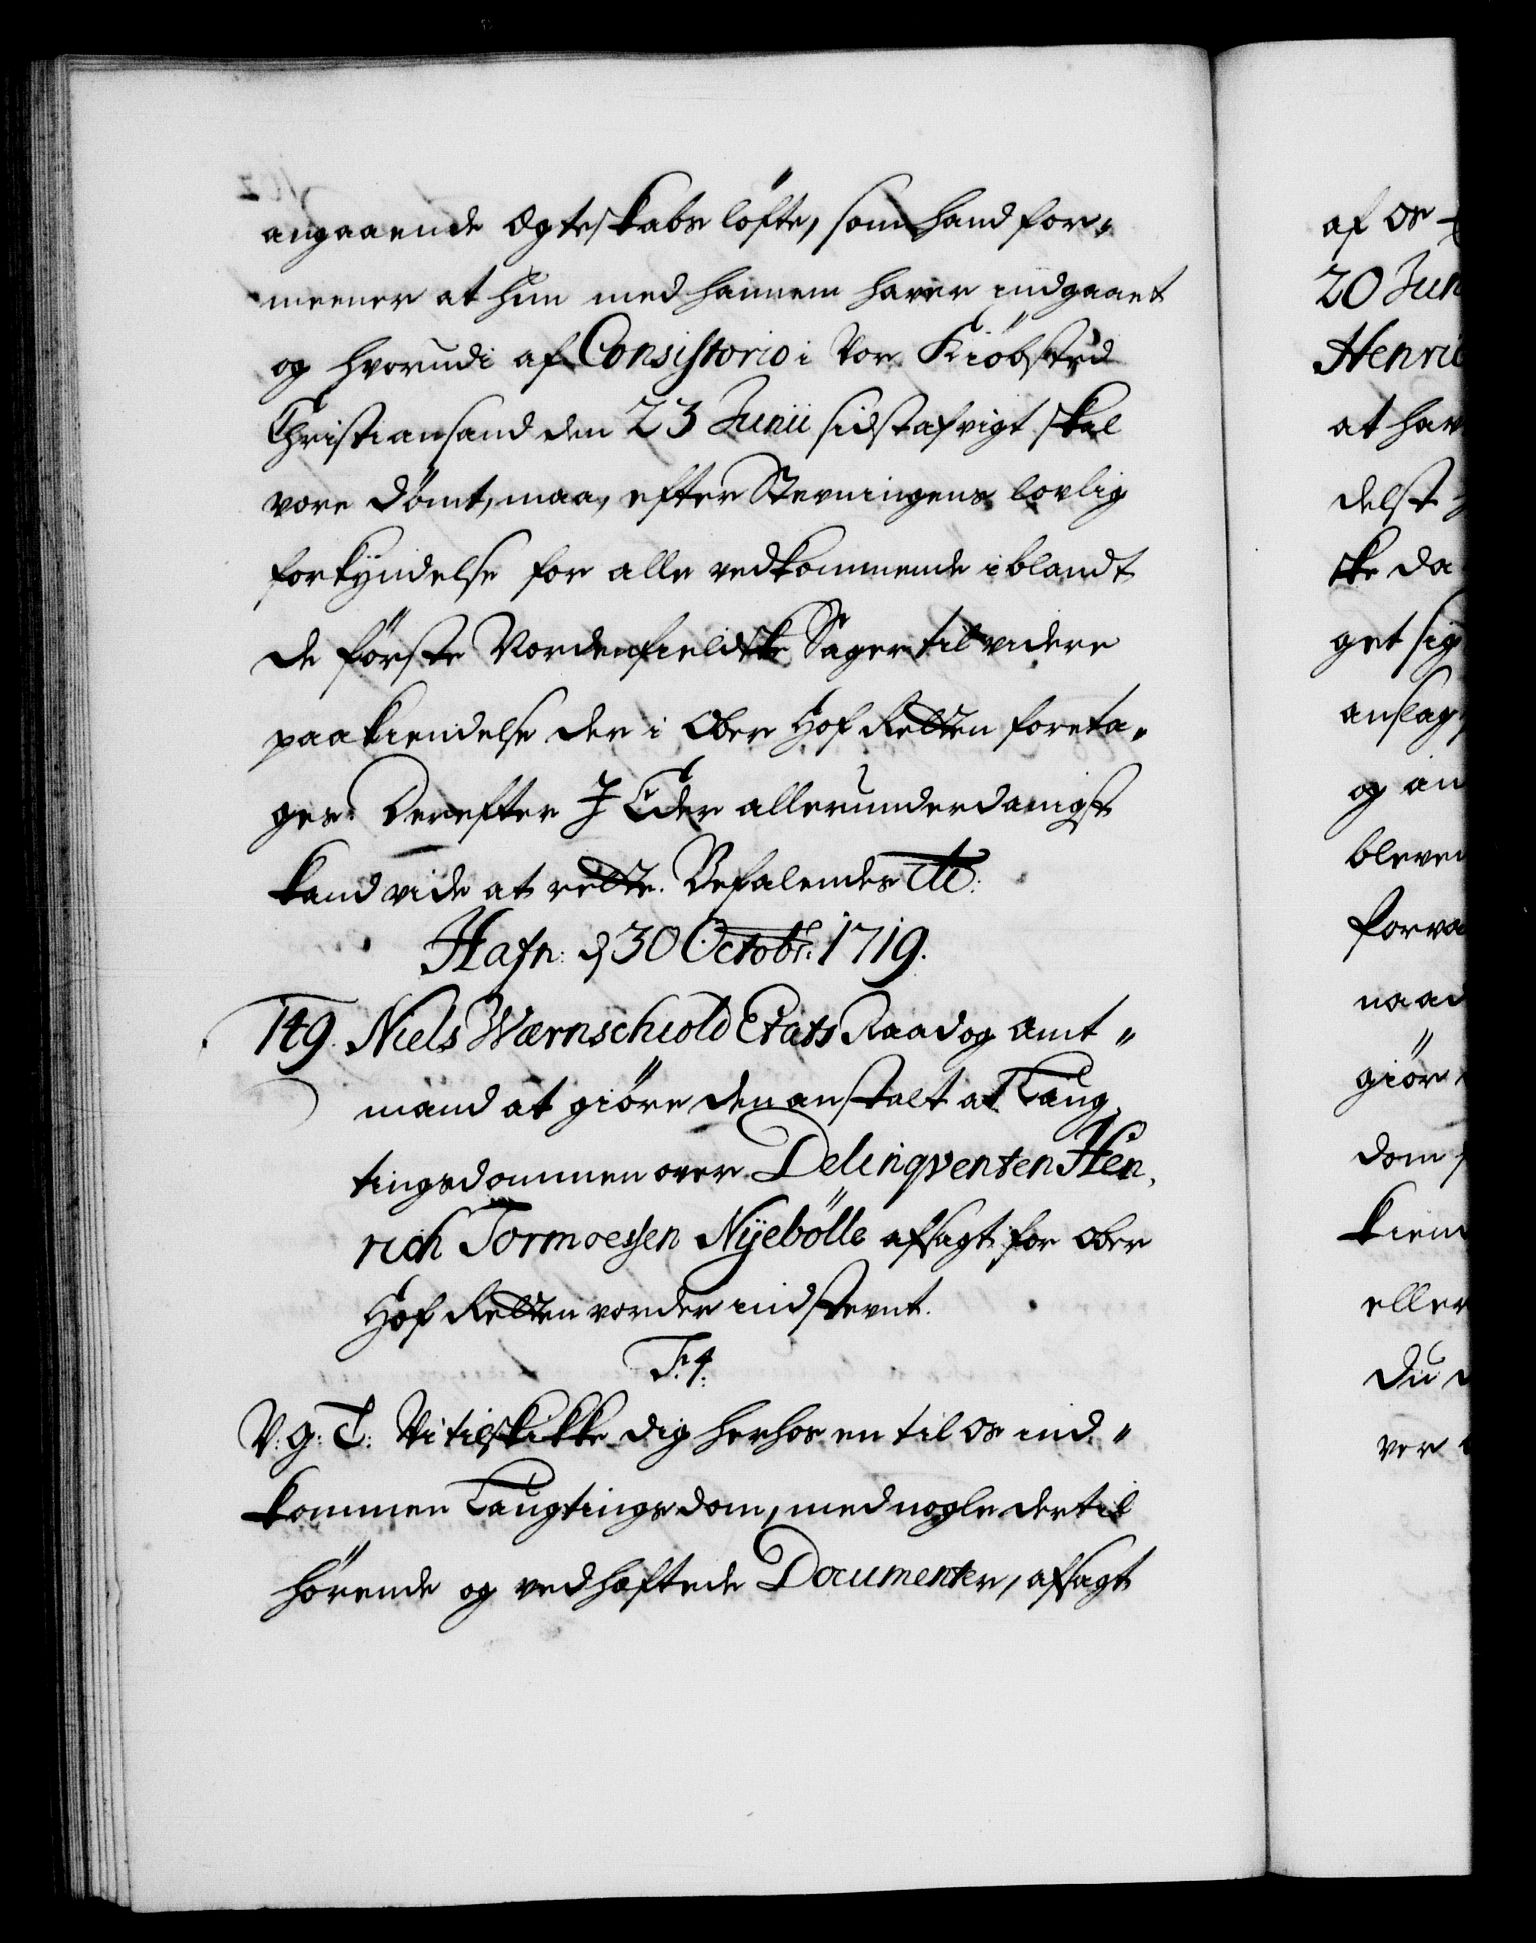 angaaende Ægteskabs löfte, som hand for„
meener at hun med hannem haver indgaaet
og hvorudi af Consistorio i Vor Kiöbsted
Christiansand den 23 Junii sidstafvigt skal
være dömt, maa, efter Stevningens lovlig
forkyndelse for alle vedkommende iblandt
de förste Nordenfieldske Sager til videre
paakiendelse der i Ober Hof Retten foreta„
ges. Derefter I Eder allerunderdanigst
kand vide at rette. Befalendes etc:
Hafn: d 30 Octobr: 1719.
149. Niels Wærnschiold Etats Raad og Amt„
mand at giöre den anstalt at Laug
tingsdommen over Delinqventen Hen„
rich Tormoessen Nÿebölle afsagt for Ober
Hof Retten vorder indstevnt.
F. 4.
V: g: T: Vi tilskikke dig herhos en til os ind„
kommen Laugtings dom, med nogle dertil
hörende og vedhæftede Documenter, afsagt
af os
20 Jun
Henric
at hav
delst
ske da
get sig
anslag
og an
bleven
forva
naad
giör
dom
kien
eller
du
ver